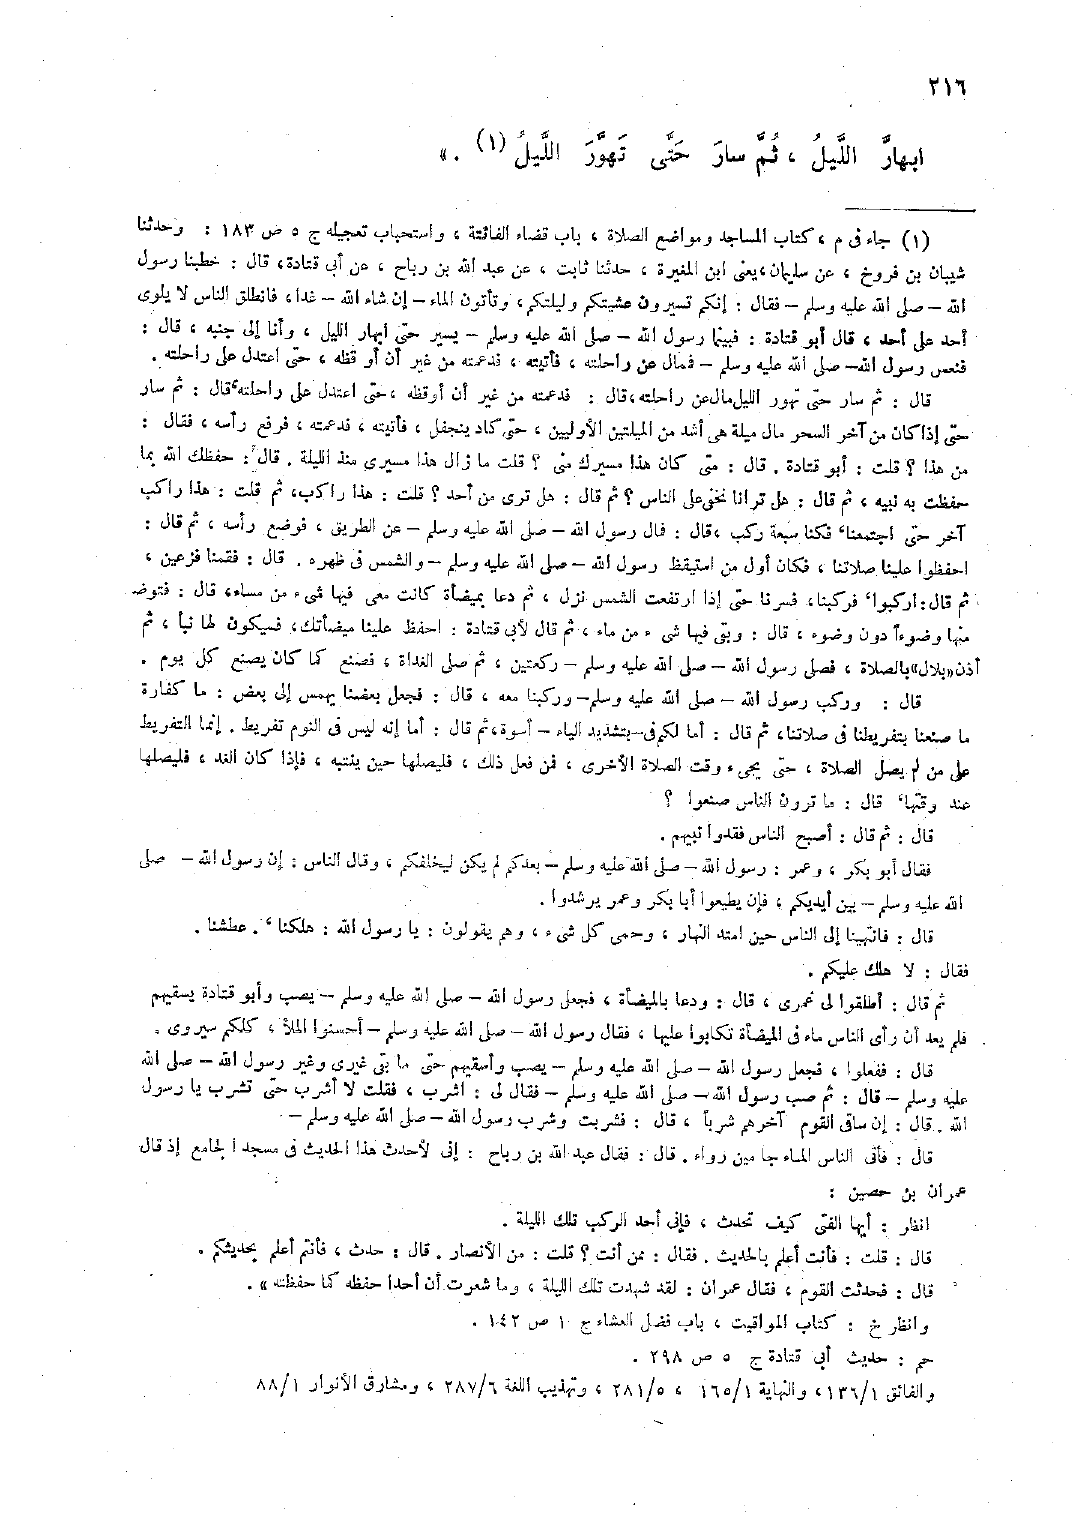 ٢١٦
ابهارَّ اللَّيلُ ، ثُمَّ سارَ حَتَّى تَهوَّرَ اللَّيلُ (١) . »
(١) جاء فى م ، كتاب المساجد ومواضع الصلاة ، باب قضاء الفائتة ، واستحباب تعجيله ج ٥ ص ١٨٣ : وحدثنا
شيبان بن فروخ ، عن سليمان ، يعنى ابن المغيرة ، حدثنا ثابت ، عن عبد الله بن رباح ، عن أبى قتادة ، قال : خطبنا رسول
الله – صلى الله عليه وسلم – فقال : إنكم تسيرون عشيتكم وليلتكم ، وتأتون الماء – إن شاء الله – غدا ، فانطلق الناس لا يلوى
أحد على أحد ، قال أبو قتادة : فبينما رسول الله – صلى الله عليه وسلم – يسير حتى ابهار الليل ، وأنا إلى جنبه ، قال :
فنعس رسول الله – صلى الله عليه وسلم – فمال عن راحلته ، فأتيته ، فدعمته من غير أن أوقظه ، حتى اعتدل على راحلته .
قال : ثم سار حتى تهور الليل مال عن راحلته ، قال : فدعمته من غير أن أوقظه ، حتى اعتدل على راحلته ، قال : ثم سار
حتى إذا كان من آخر السحر مال ميلة هى أشد من الميلتين الأوليين ، حتى كاد ينجفل ، فأتيته ، فدعمته ، فرفع رأسه ، فقال :
من هذا ؟ قلت : أبو قتادة . قال : متى كان هذا مسيرك منى ؟ قلت ما زال هذا مسيرى منذ الليلة . قال : حفظك الله بما
حفظت به نبيه ، ثم قال : هل ترانا نخفى على الناس ؟ ثم قال : هل ترى من أحد ؟ قلت : هذا راكب ، ثم قلت : هذا راكب
آخر حتى اجتمعنا ، فكنا سبعة ركب ، قال : فمال رسول الله – صلى الله عليه وسلم – عن الطريق ، فوضع رأسه ، ثم قال :
احفظوا علينا صلاتنا ، فكان أول من استيقظ رسول الله – صلى الله عليه وسلم – والشمس فى ظهره . قال : فقمنا فزعين ،
ثم قال : اركبوا ، فركبنا ، فسرنا حتى إذا ارتفعت الشمس نزل ، ثم دعا بميضأة كانت معى فيها شىء من مساء ، قال : فتوضا
منها وضوءاً دون وضوء ، قال : وبقى فيها شىء من ماء ، ثم قال لأبى قتادة : احفظ علينا ميضأتك ، فسيكون لها نبأ ، ثم
أذن «بلال» بالصلاة ، فصلى رسول الله – صلى الله عليه وسلم – ركعتين ، ثم صلى الغداة ، فصنع كما كان يصنع كل يوم .
قال : وركب رسول الله – صلى الله عليه وسلم – وركبنا معه ، قال : فجعل بعضنا يهمس إلى بعض : ما كفارة
ما صنعنا بتفريطنا فى صلاتنا ، ثم قال : أما لكم فى – بتشديد الياء – أسوة ، ثم قال : أما إنه ليس فى النوم تفريط . إنما التفريط
على من لم يصل الصلاة ، حتى يجىء وقت الصلاة الأخرى ، فمن فعل ذلك ، فليصلها حين ينتبه ، فإذا كان الغد ، فليصلها
عند وقتها ، قال : ما ترون الناس صنعوا ؟
قال : ثم قال : أصبح الناس فقدوا نبيهم .
فقال أبو بكر ، وعمر : رسول الله – صلى الله عليه وسلم – بعدكم لم يكن ليخلفكم ، وقال الناس : إن رسول الله – صلى
الله عليه وسلم – بين أيديكم ، فإن يطيعوا أبا بكر وعمر يرشدوا .
قال : فانتهينا إلى الناس حين امتد النهار ، وحمى كل شىء ، وهم يقولون : يا رسول الله : هلكنا ، . عطشنا .
فقال : لا هلك عليكم .
ثم قال : أطلقوا لى غمرى ، قال : ودعا بالميضأة ، فجعل رسول الله – صلى الله عليه وسلم – يصب وأبو قتادة يسقيهم
فلم يعد أن رأى الناس ماء فى الميضأة تكابوا عليها ، فقال رسول الله – صلى الله عليه وسلم – أحسنوا الملأ ، كلكم سيروى .
قال : ففعلوا ، فجعل رسول الله – صلى الله عليه وسلم – يصب وأسقيهم حتى ما بقى غيرى وغير رسول الله – صلى الله
عليه وسلم – قال : ثم صب رسول الله – صلى الله عليه وسلم – فقال لى : اشرب ، فقلت لا أشرب حتى تشرب يا رسول
الله . قال : إن ساقى القوم آخرهم شرباً ، قال : فشربت وشرب رسول الله – صلى الله عليه وسلم –
قال : فأتى الناس الماء جامين رواء . قال : فقال عبد الله بن رباح : إنى لأحدث هذا الحديث فى مسجد الجامع إذ قال
عمران بن حصين :
انظر : أيها الفتى كيف تحدث ، فإنى أحد الركب تلك الليلة .
قال : قلت : فأنت أعلم بالحديث . فقال : ممن أنت ؟ قلت : من الأنصار . قال : حدث ، فأنتم أعلم بحديثكم .
قال : فحدثت القوم ، فقال عمران : لقد شهدت تلك الليلة ، وما شعرت أن أحدا حفظه كما حفظته » .
وانظر خ : كتاب المواقيت ، باب فضل العشاء ج ١ ص ١٤٢ .
حم : حديث أبى قتادة ج ٥ ص ٢٩٨ .
والفائق ١٣٦/١ ، والنهاية ١٦٥/١ ، ٢٨١/٥ ، وتهذيب اللغة ٢٨٧/٦ ، ومشارق الأنوار ٨٨/١